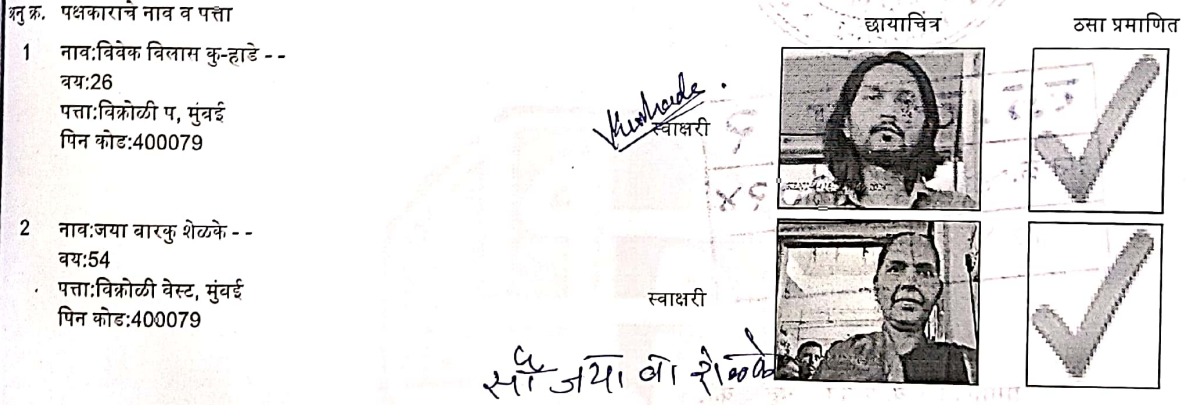 अनु क्र. पक्षकाराचे नाव व पत्ता छायाचित्र ठसा प्रमाणित
1 नाव:विवेक विलास कु-हाडे - -
वय:26
पत्ता:विक्रोळी प, मुंबई
पिन कोड:400079
स्वाक्षरी
2 नाव:जया बारकु शेळके - -
वय:54
पत्ता:विक्रोळी वेस्ट, मुंबई
पिन कोड:400079
स्वाक्षरी
सौ जया बा शेळके